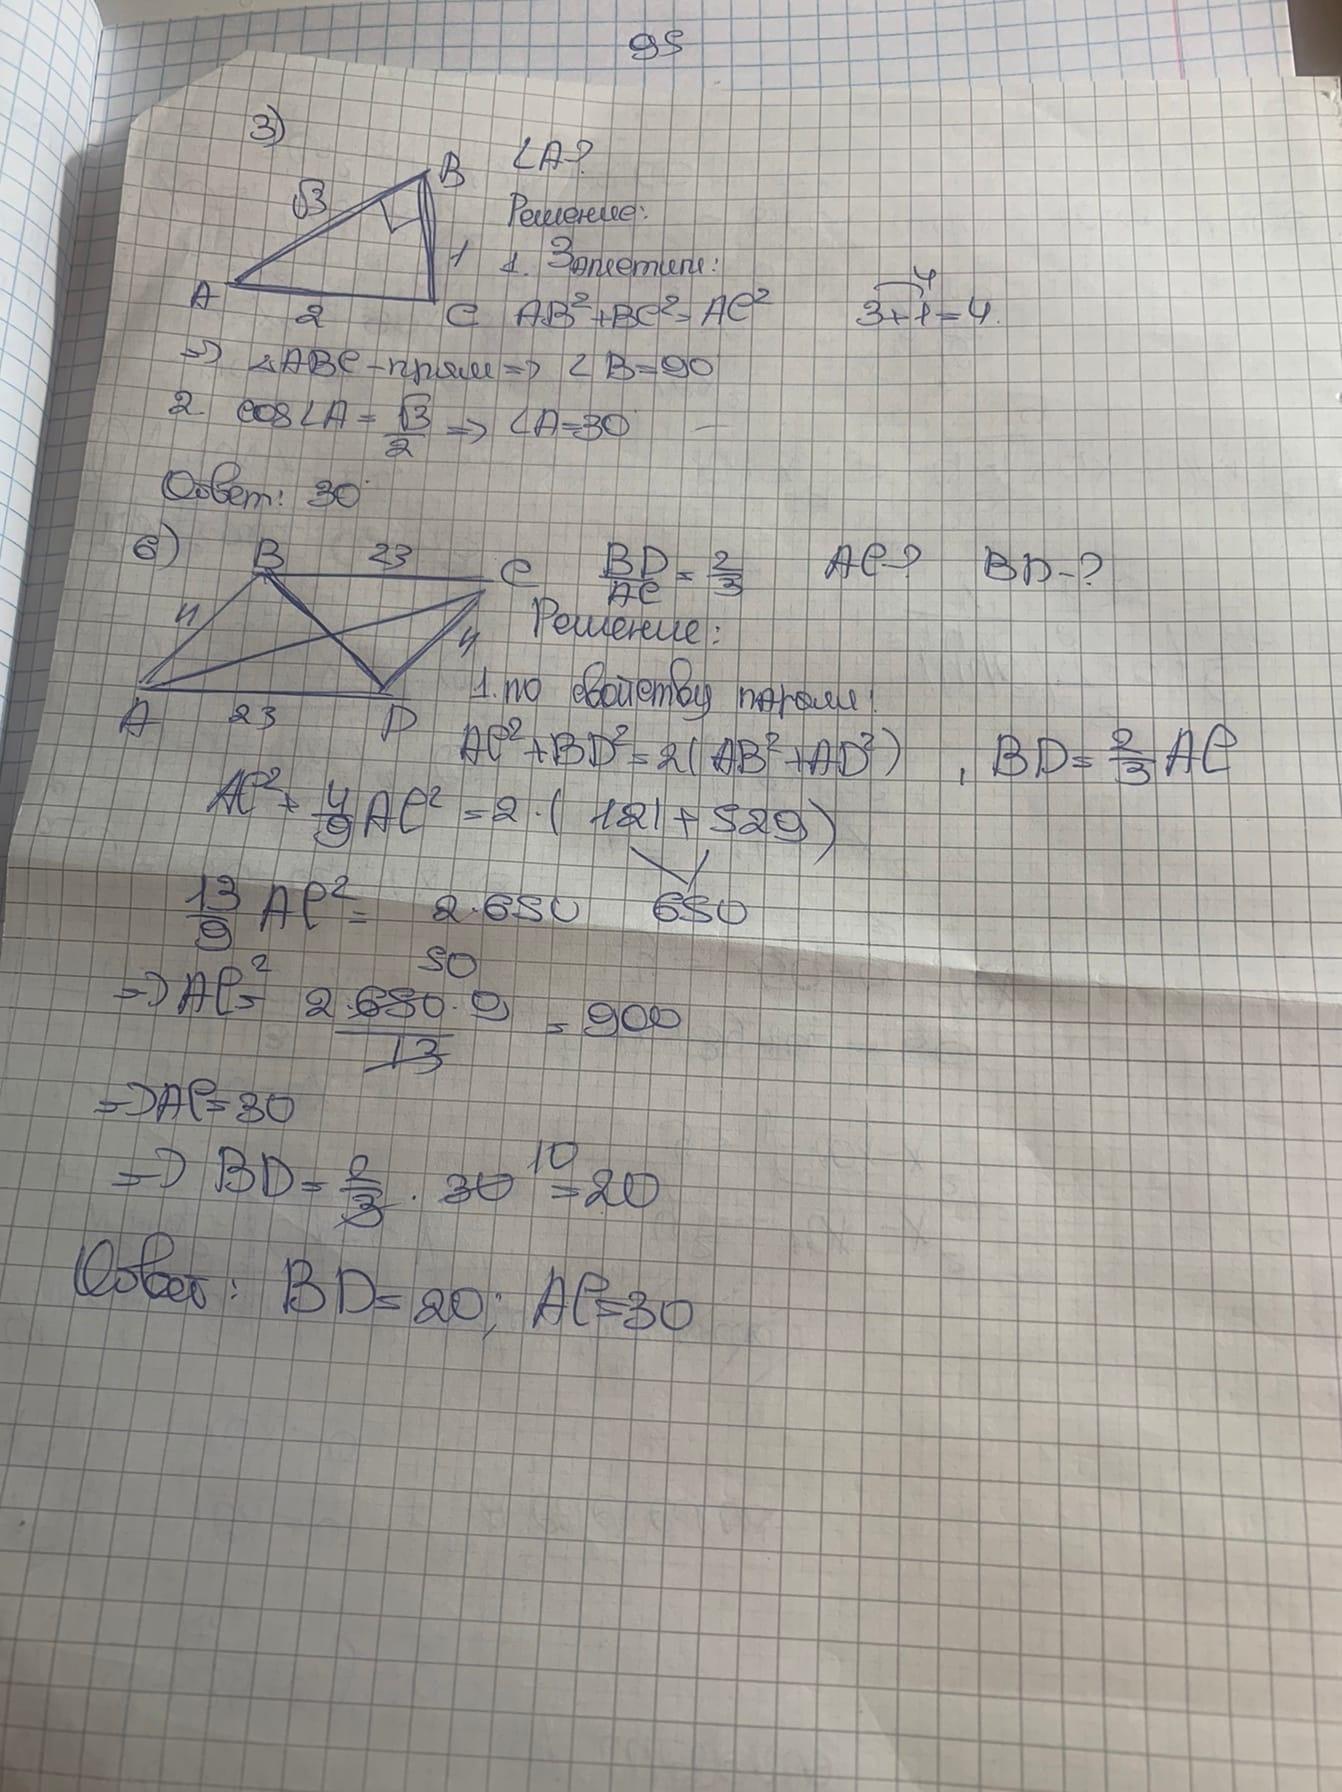 95
3)
∠A-?
B
√3
Решение:
1
1. Заметим:
A
2
C
AB²+BC²=AC²
3+1=4.
4
=> △ABC-прям => ∠B=90
2. cos∠A = √3/2 => ∠A=30°
Ответ: 30°
6)
B
23
C
BD/AC = 2/3
AC-?
BD-?
11
Решение:
A
23
D
1. по свойству паралл:
AC²+BD²=2(AB²+AD²), BD=2/3 AC
AC²+4/9 AC²=2·(121+529)
13/9 AC²= 2·650
650
50
=> AC²= 2·650·9/13 = 900
=> AC=30
10
=> BD= 2/3 · 30 =20
Ответ: BD=20; AC=30